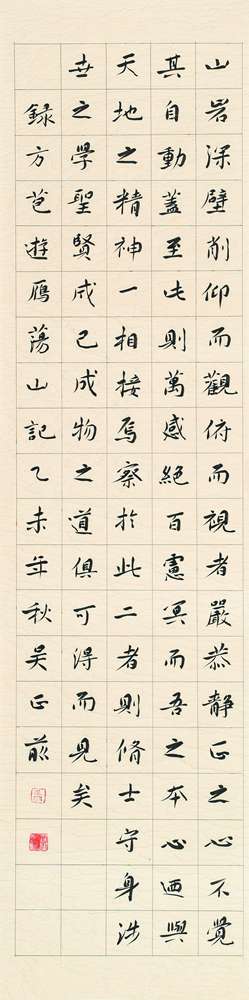 山岩深壁削仰而觀俯而視者嚴恭靜正之心不覺
其自動蓋至此則萬感絕百慮冥而吾之本心迺與
天地之精神一相接焉察於此二者則脩士守身涉
世之學聖賢成己成物之道俱可得而見矣
錄方苞遊鴈蕩山記乙未年秋吳正前